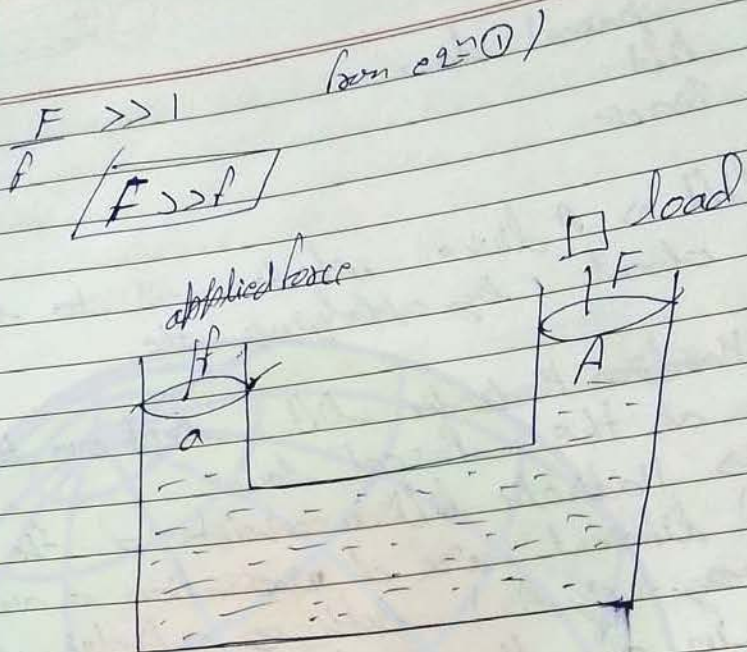 from eqn ①)
F/f >> 1
F >> f
load
applied force
f
F
a
A